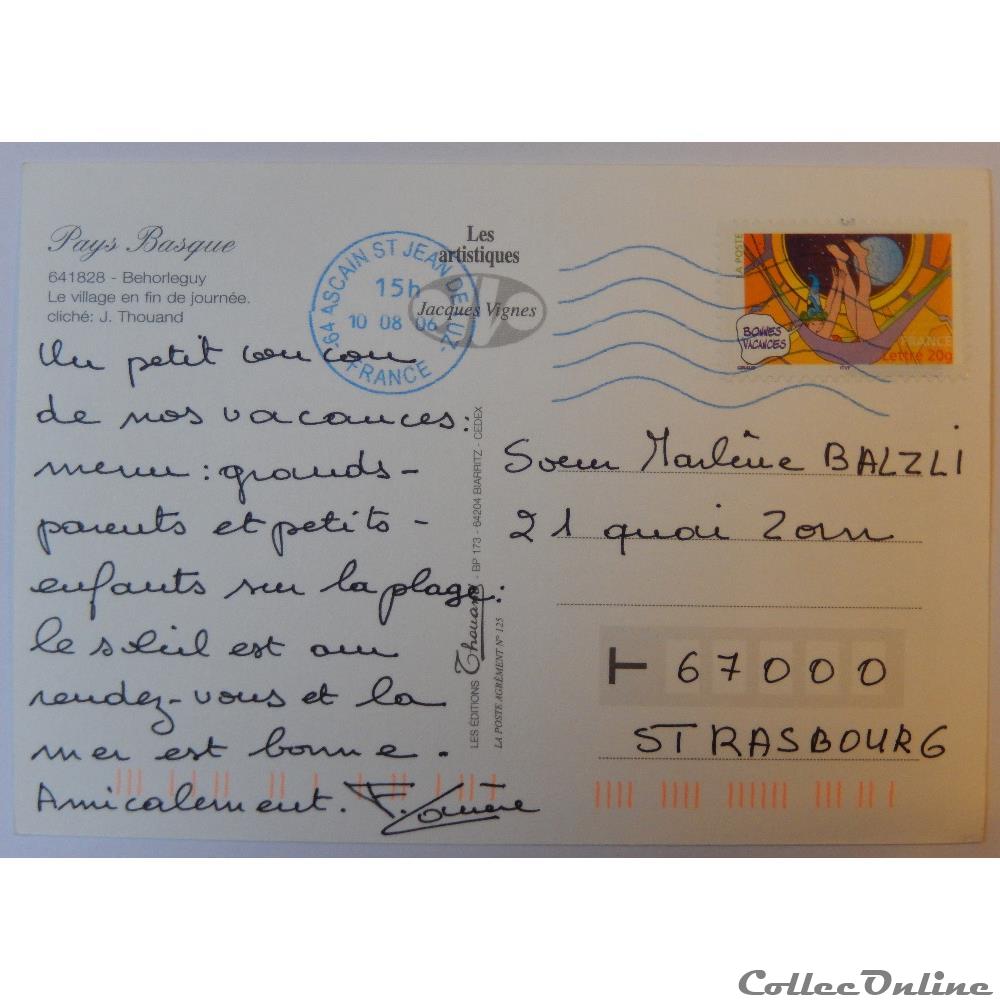 Pays Basque
641828 - Behorleguy
Le village en fin de journée.
cliché: J. Thouand
Les
artistiques
Jacques Vignes
64 ASCAIN ST JEAN DE LUZ
15h
10 08 06
FRANCE
LA POSTE
BONNES
VACANCES
FRANCE
Lettre 20g
ITVF
Un petit coucou
de nos vacances:
menu: grands-
parents et petits-
enfants sur la plage:
le soleil est au
rendez-vous et la
mer est bonne.
Amicalement.
LES ÉDITIONS Thouand - BP 173 - 64204 BIARRITZ - CEDEX
LA POSTE AGRÉMENT N° 125
Soeur Marlène BALZLI
21 quai Zorn
67000
STRASBOURG
CollecOnline